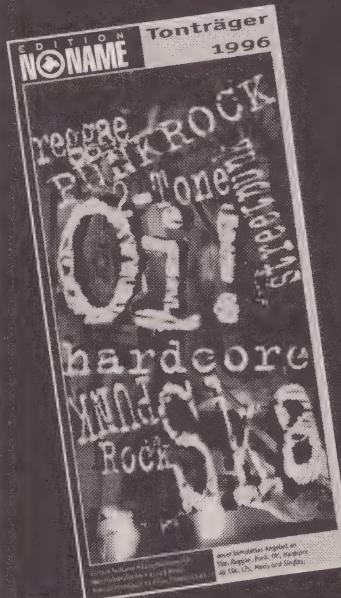 EDITION
NO NAME
Tonträger
1996
reggae
PUNKROCK
2-Tone
Streetpunk
Oi!
hardcore
PUNK
Rock
Ska
unser komplettes Angebot an
Ska, Reggae, Punk, Oi!, Hardcore